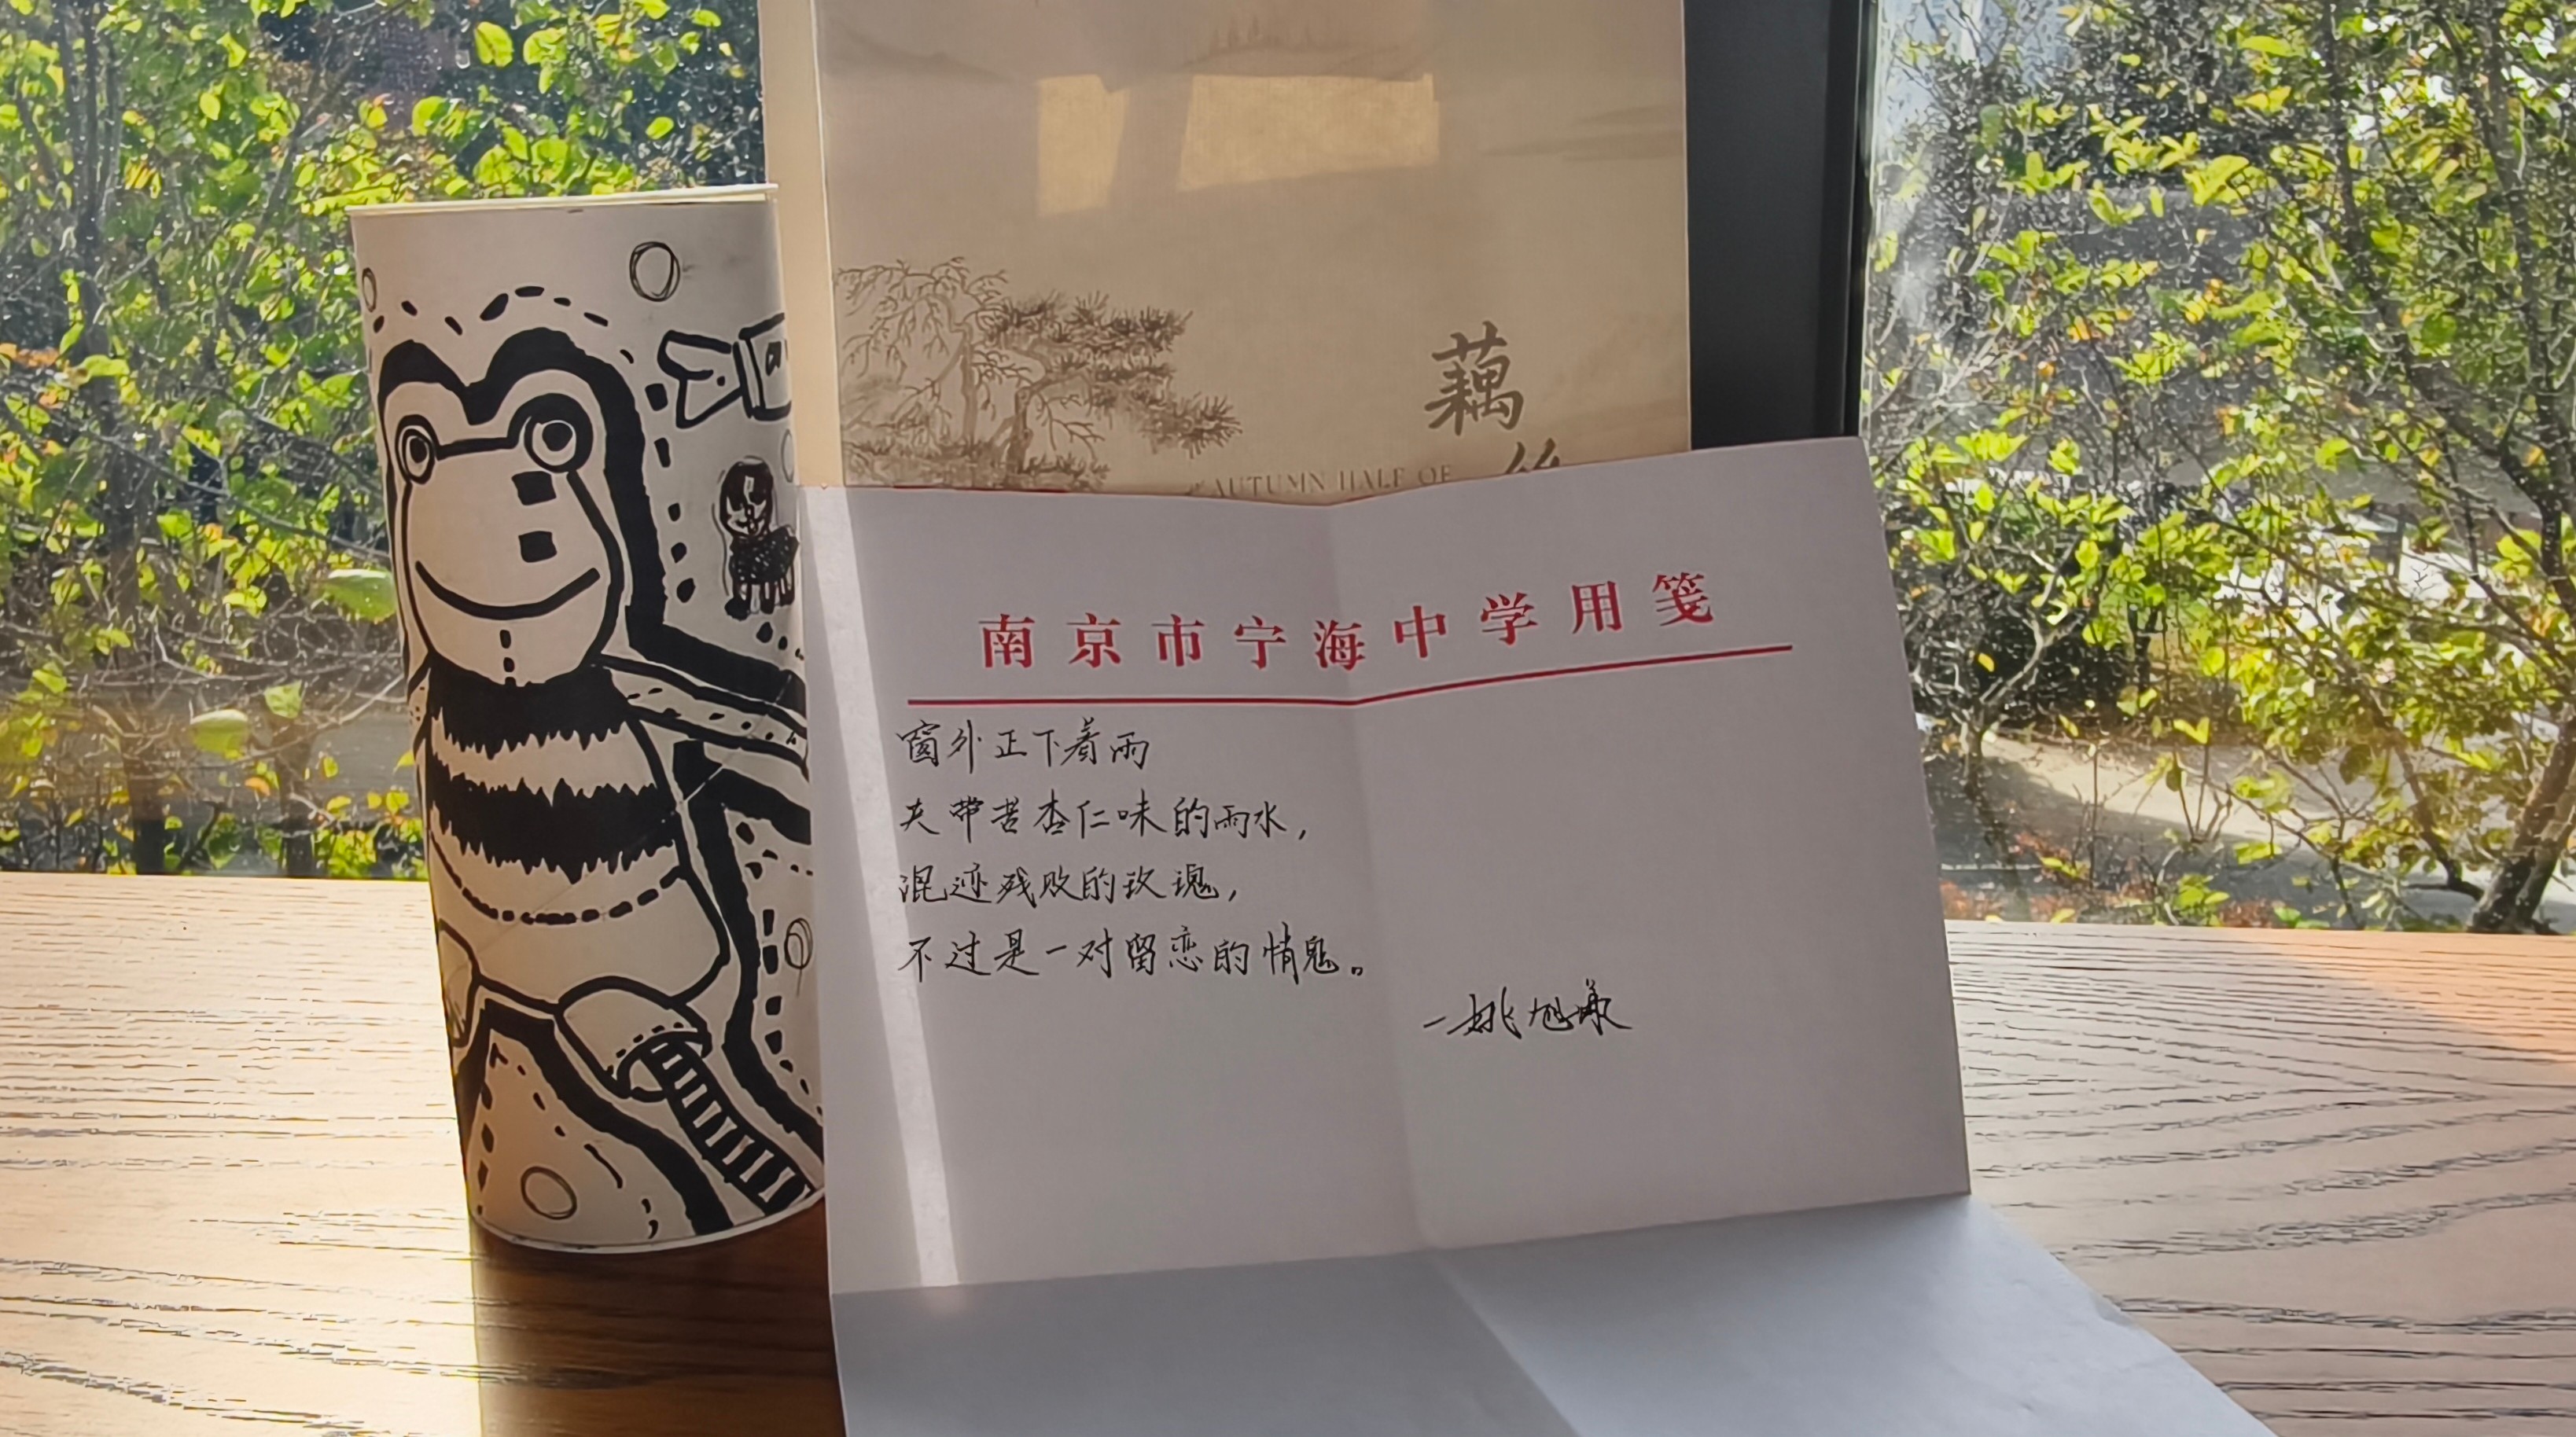 藕
AUTUMN HALF OF
南京市宁海中学用笺
窗外正下着雨
夹带苦杏仁味的雨水，
混迹残败的玫瑰，
不过是一对留恋的情鬼。
—姚旭承